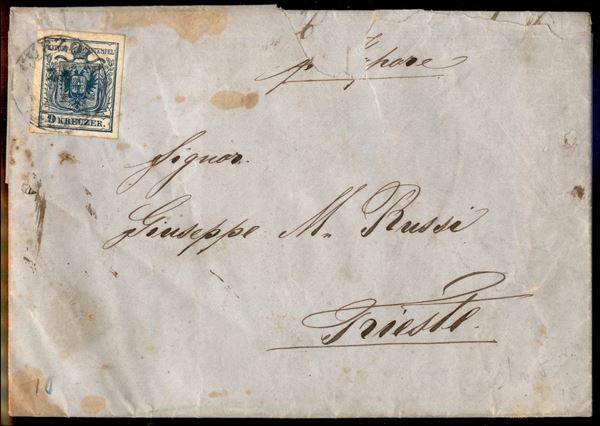 KKPOST-STEMPEL
9 KREUZER.
Signor
Giuseppe M. Russi
Trieste.
10